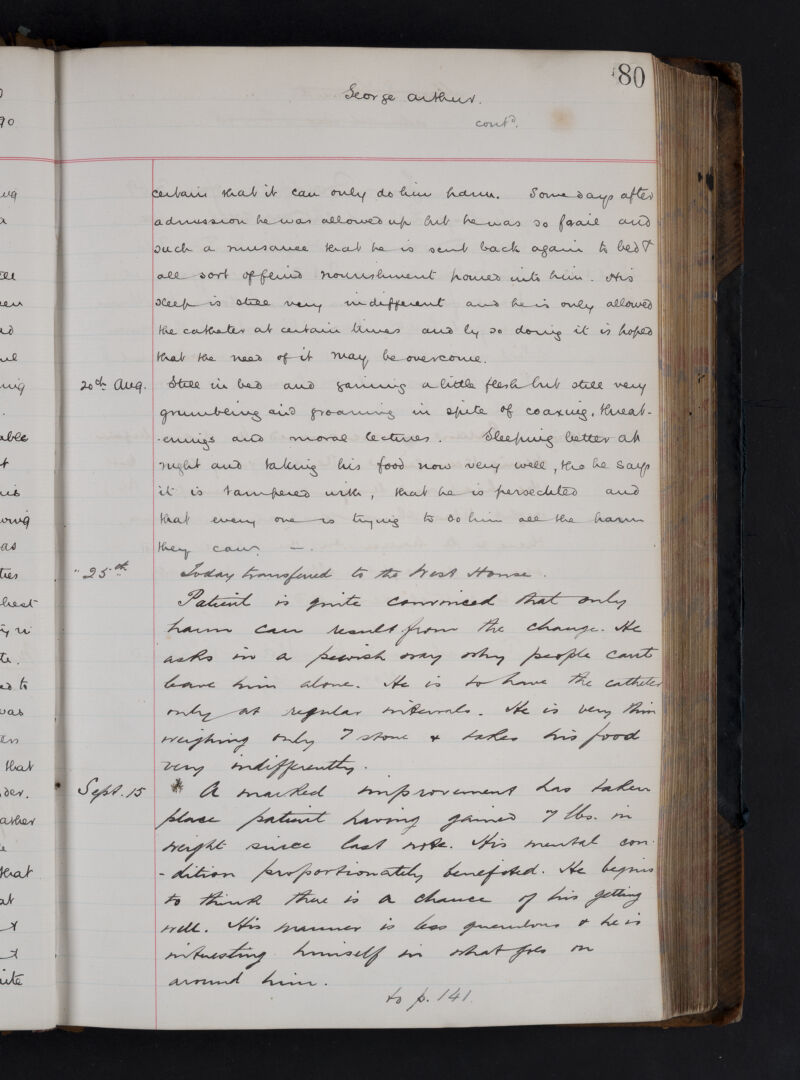 80
George Arthur.
cont.d
certain that it can only do him harm. Some days after
admission he was allowed up but he was so frail and
such a nuisance that he is sent back again to bed &
all sort of fluid nourishment poured into him. His
sleep is still very indifferent and he is only allowed
the catheter at certain times and by so doing it is hoped
that the need of it may be overcome.
20th Aug. Still in bed and gaining a little flesh but still very
grumbling and groaning in spite of coaxing, threat-
-enings and moral lectures. Sleeping better at
night and taking his food now very well, tho he says
it is tampered with, that he is persecuted and
that every one is trying to do him all the harm
they can. —.
" 25th. Today transferred to the West House.
Patient is quite convinced that only
harm can result from the change. He
asks in a peevish way why people can't
leave him alone. He is to have the catheter
only at regular intervals. He is very thin
weighing only 7 stone & takes his food
very indifferently.
Sept. 15 * A marked improvement has taken
place patient having gained 7 lbs. in
weight since last note. His mental con-
-dition proportionately benefited. He begins
to think there is a chance of his getting
well. His manner is less querulous & he is
interesting himself in what goes on
around him.
to p. 141.